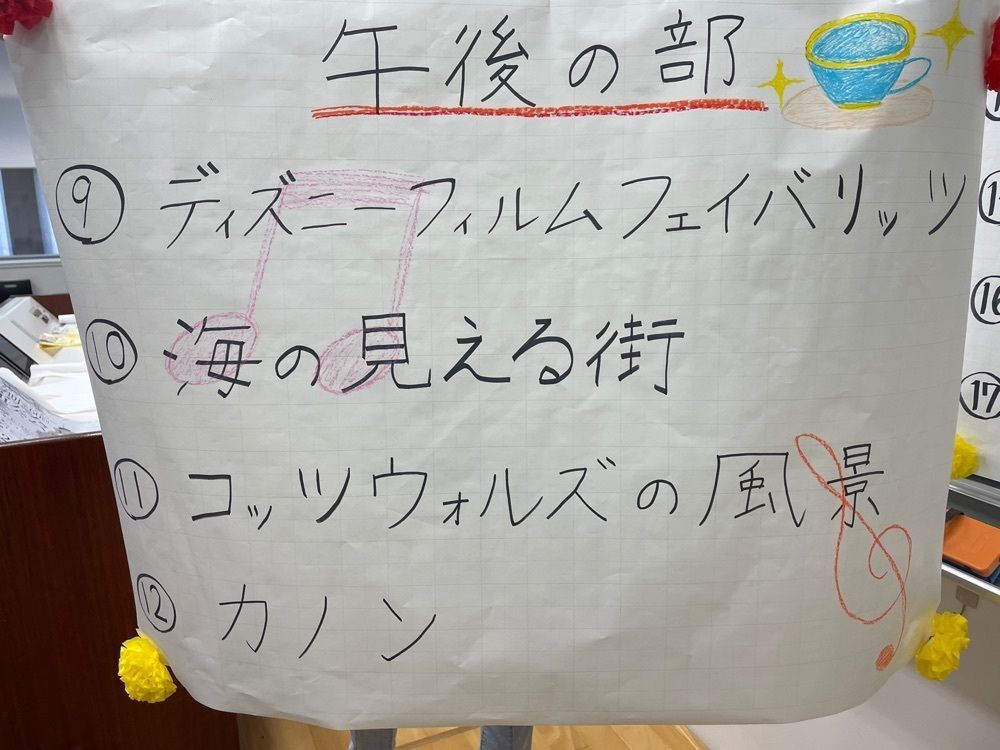 午後の部
⑨ ディズニーフィルムフェイバリッツ
⑩ 海の見える街
⑪ コッツウォルズの風景
⑫ カノン
⑯
⑰